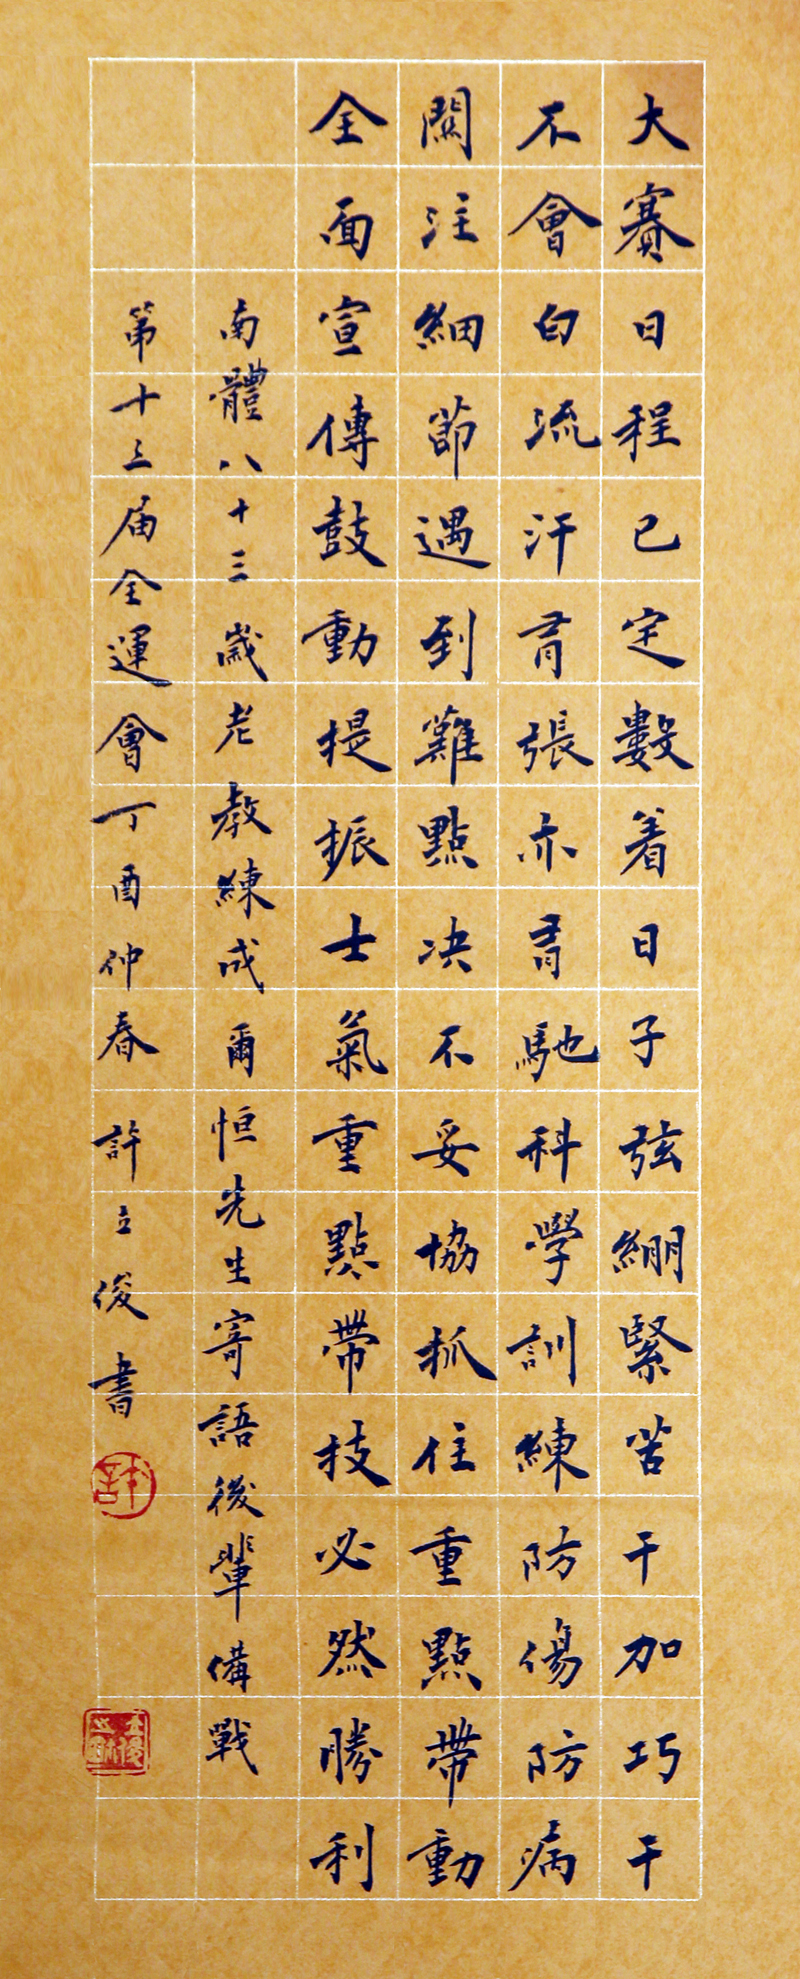 大賽日程已定數着日子弦繃緊苦干加巧干
不會白流汗有張亦有馳科學訓練防傷防病
關注細節遇到難點决不妥協抓住重點帶動
全面宣傳鼓動提振士氣重點帶技必然勝利
南體八十三歲老教練成爾恒先生寄語後輩備戰
第十三届全運會丁酉仲春許立俊書
許